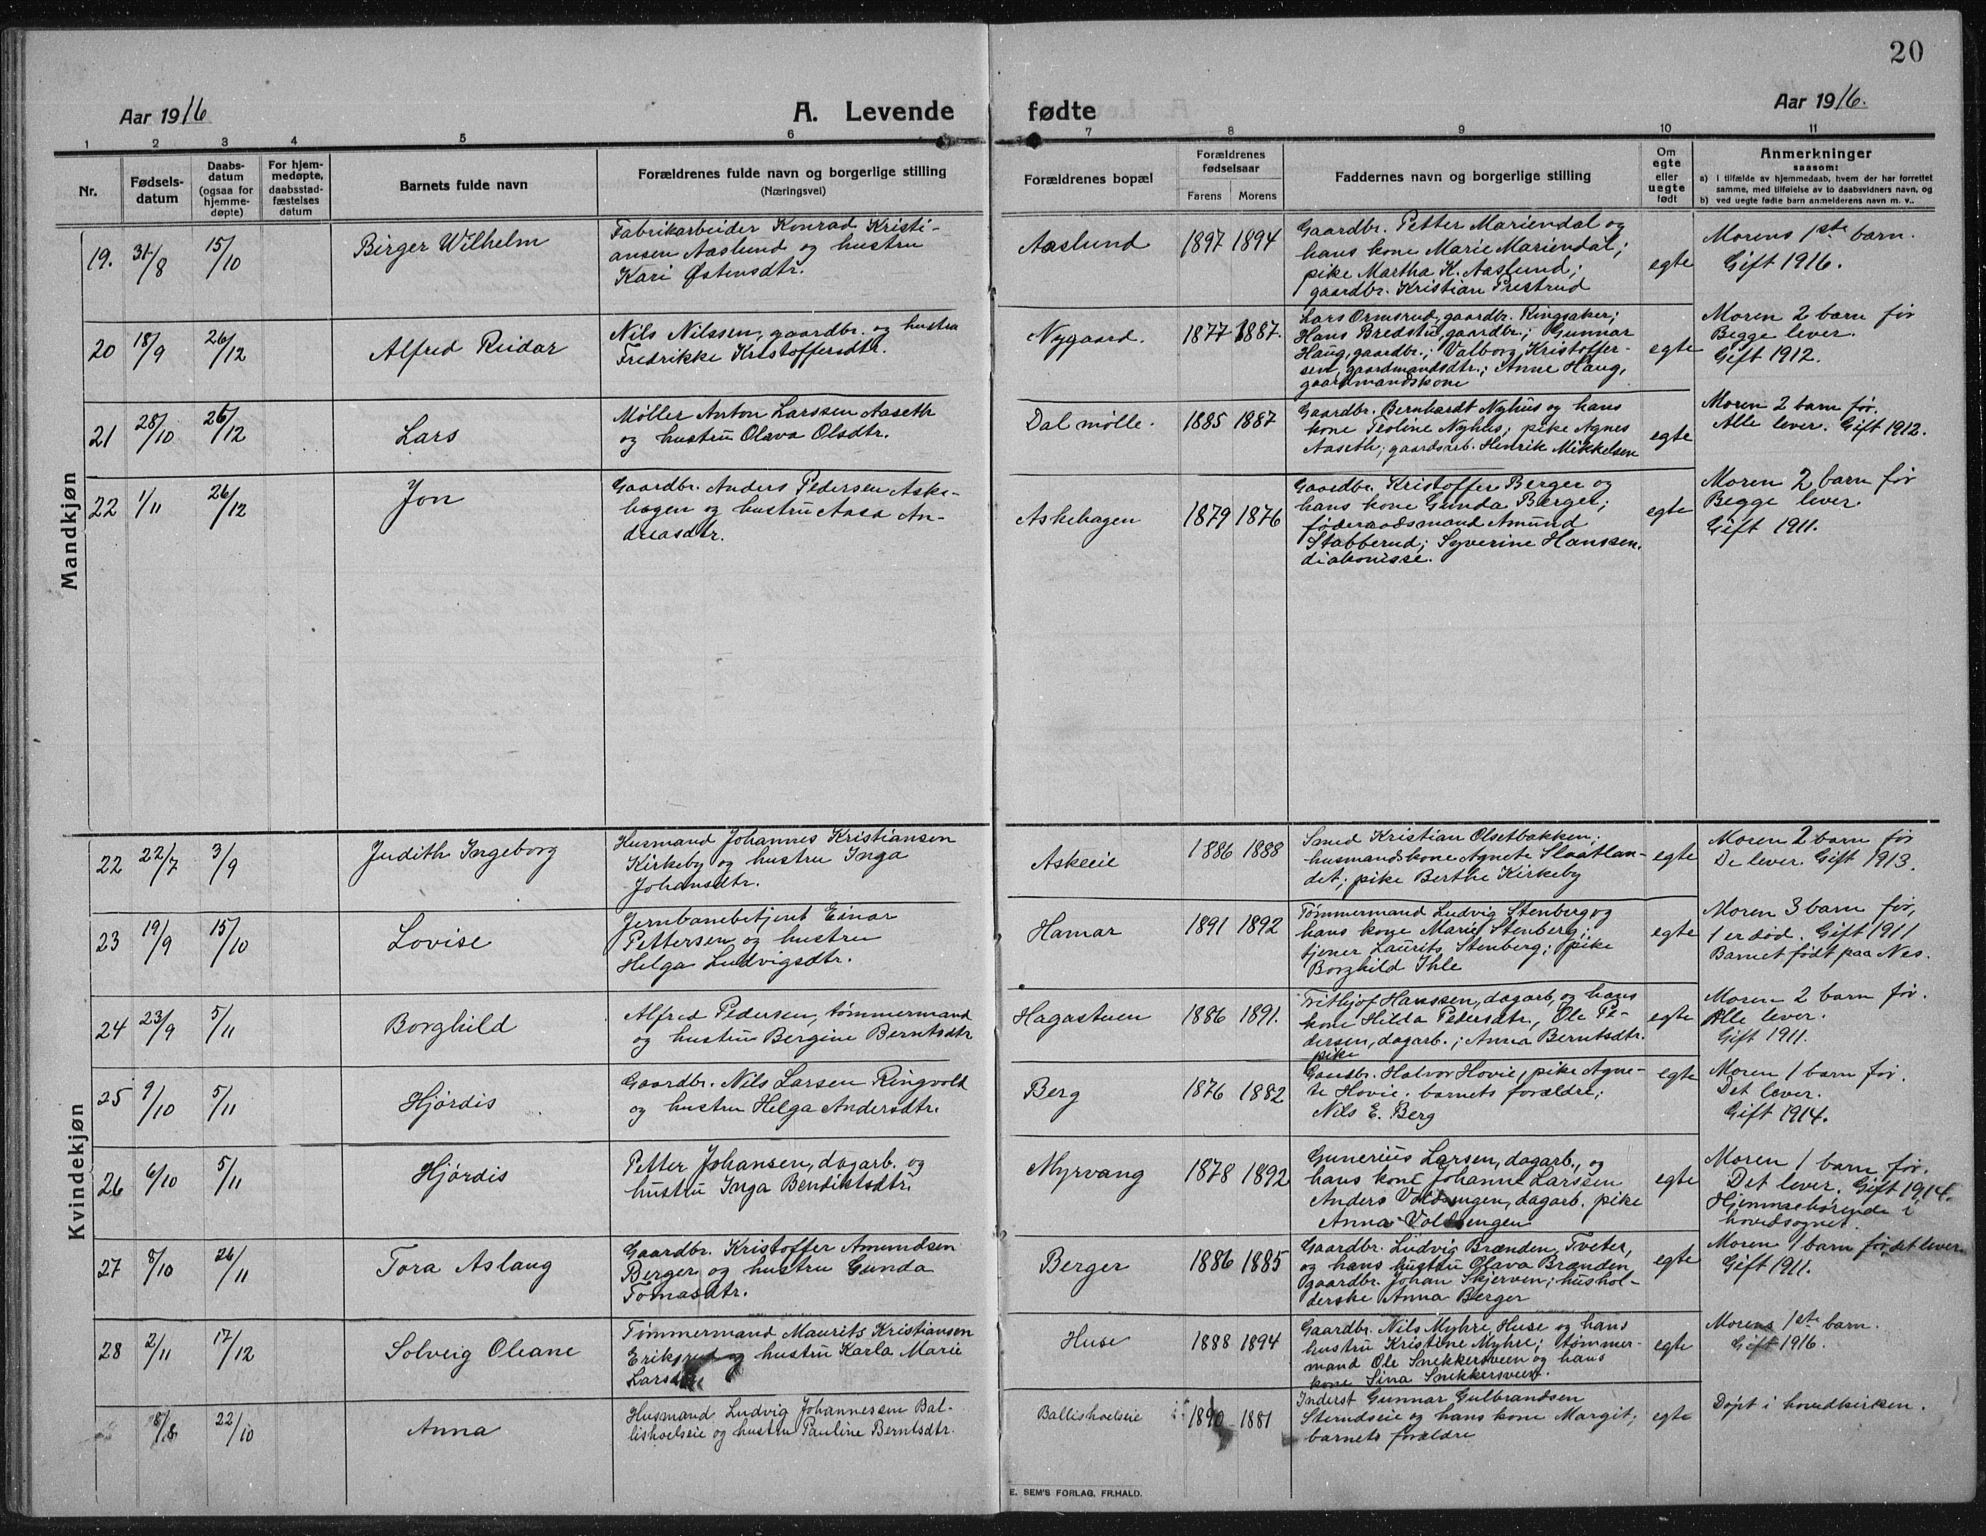 20
Aar 1916
A. Levende fødte
Aar 1916.
1 2 3 4 5 6 7 8 9 10 11
Nr.
Fødsels-
datum
Daabs-
datum
(ogsaa for
hjemme-
døpte)
For hjem-
medøpte,
daabsstad-
fæstelses
datum
Barnets fulde navn
Forældrenes fulde navn og borgerlige stilling
(Næringsvei)
Forældrenes bopæl
Forældrenes
fødselsaar
Farens Morens
Faddernes navn og borgerlige stilling
Om
egte
eller
uegte
født
Anmerkninger
saasom:
a) I tilfælde av hjemmedaab, hvem der har forrettet
samme, med tilføielse av to daabsvidners navn, og
b) ved uegte fødte barn anmelderens navn m. v..
Mandkjøn
19. 31/8 15/10
Birger Wilhelm
Fabrikarbeider Konrad Kristi-
ansen Aaslund og hustru
Kari Østensdtr.
Aaslund
1897 1894
Gaardbr. Petter Mariendal og
hans kone Marie Mariendal;
pike Martha K. Aaslund;
gaardbr. Kristian Prestrud
egte
Morens 1ste barn.
Gift 1916.
20 18/9 26/12
Alfred Reidar
Nils Nilssen, gaardbr. og hustru
Fredrikke Kristoffersdtr.
Nygaard.
1877 1887.
Lars Ormsrud, gaardbr. Ringsaker;
Hans Bredstu, gaardbr.; Gunnar
Haug, gaardbr.; Valborg Kristoffer-
sen, gaardmandsdtr.; Anne Haug,
gaardmandskone
egte
Moren 2 barn før
Begge lever.
Gift 1912.
21 28/10 26/12
Lars
Møller Anton Larssen Aaseth
og hustru Olava Olsdtr.
Dal mølle.
1885 1887
Gaardbr. Bernhardt Nyhus og hans
kone Troline Nyhus; pike Agnes
Aaseth; gaardsarb. Henrik Mikkelsen
egte
Moren 2 barn før.
Alle lever. Gift 1912.
22 1/11 26/12
Jon
Gaardbr. Anders Pedersen Aske-
hagen og hustru Aasa An-
dreasdtr.
Askehagen
1879 1876
Gaardbr. Kristoffer Berger og
hans kone Gunda Berger;
føderaadsmand Amund
Stabberud; Syverine Hanssen.
diakonisse.
egte
Moren 2 barn før
Begge lever
Gift 1911.
Kvindekjøn
22 22/7 3/9
Judith Ingeborg
Husmand Johannes Kristiansen
Kirkeby og hustru Inga
Johansdtr.
Askeeie
1886 1888
Smed Kristian Olsetbakken.
husmandskone Agnete Slaatlan-
det; pike Berthe Kirkeby
egte
Moren 2 barn før
De lever. Gift 1913.
23 19/9 15/10
Lovise
Jernbanebetjent Einar
Pettersen og hustru
Helga Ludvigsdtr.
Hamar
1891 1892
Tømmermand Ludvig Stenberg og
hans kone Marie Stenberg;
tjener Laurits Stenberg; pike
Borghild Ihle
egte
Moren 3 barn før,
1 er død. Gift 1911
Barnet født paa Nes.
24 23/9 5/11
Borghild
Alfred Pedersen, tømmermand
og hustru Bergine Berntsdtr
Hagastuen
1886 1891.
Frithjof Hanssen, dagarb. og hans
kone Hilda Pedersdtr., Ole Pe-
dersen, dagarb.; Anna Berntsdtr.
pike
egte
Moren 2 barn før.
Alle lever.
Gift 1911.
25 9/10 5/11
Hjørdis
Gaardbr. Nils Larsen Ringvold
og hustru Helga Andersdtr.
Berg
1876 1882
Gaardbr. Halvor Hovie, pike Agne-
te Hovie. barnets forældre;
Nils E. Berg
egte
Moren 1 barn før.
Det lever.
Gift 1914.
26 6/10 5/11
Hjørdis
Petter Johansen, dagarb. og
hustru Inga Bendiktsdtr.
Myrvang
1878 1892
Gunerius Larsen, dagarb., og
hans kone Johanne Larsen
Anders Voldsengen, dagarb. pike
Anna Voldsengen
egte
Moren 1 barn før.
Det lever. Gift 1914.
Hjemmehørende i
hovedsognet.
27 8/10 26/11
Tora Aslaug
Gaardbr. Kristoffer Amundsen
Berger og hustru Gunda
Tomasdtr.
Berger
1886 1885
Gaardbr. Ludvig Brænden, Tveter,
og hans hustru Olava Brænden
gaardbr. Johan Skjerven; hushol-
derske Anna Berger
egte
Moren 1 barn før, det lever
Gift 1911.
28 2/11 17/12
Solveig Oleane
Tømmermand Maurits Kristiansen
Eriksrud og hustru Karla Marie
Huse
1888 1894
Gaardbr. Nils Myhre Huse og hans
hustru Kristine Myhre; tømmer-
mand Ole Snekkersveen og hans
kone Sina Snekkersveen.
egte
Morens 1ste barn.
Gift 1916.
8/8 22/10
Anna
Husmand Ludvig Johannessen Bal-
lishoelseie og hustru Pauline Berntsdtr.
Ballishoelseie
1890 1881
Inderst Gunnar Gulbrandsen
og hans kone Margit;
barnets forældre
egte
Døpt i hovedkirken.
E. SEM'S FORLAG, FR.HALD.